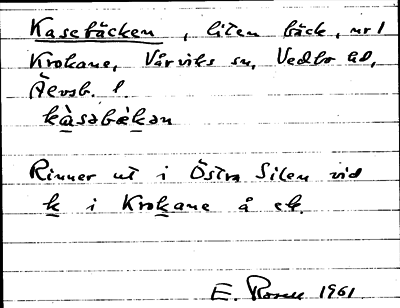 Kasebäcken, liten bäck, nr 1
Krokane, Vårviks sn, Vedbo hd,
Älvsb. l.
kàsəbàkən
Rinner ut i Östra Silen vid
k i Krokane å ek.
E. Rosell 1961